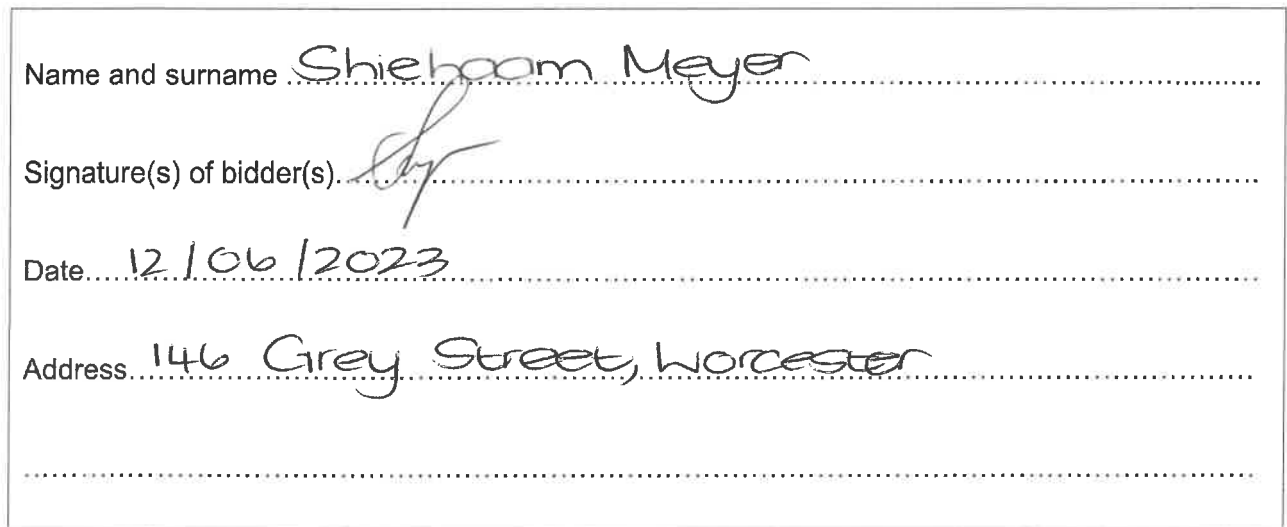 Name and surname Shiehaam Meyer
Signature(s) of bidder(s)
Date 12/06/2023
Address 146 Grey Street, Worcester